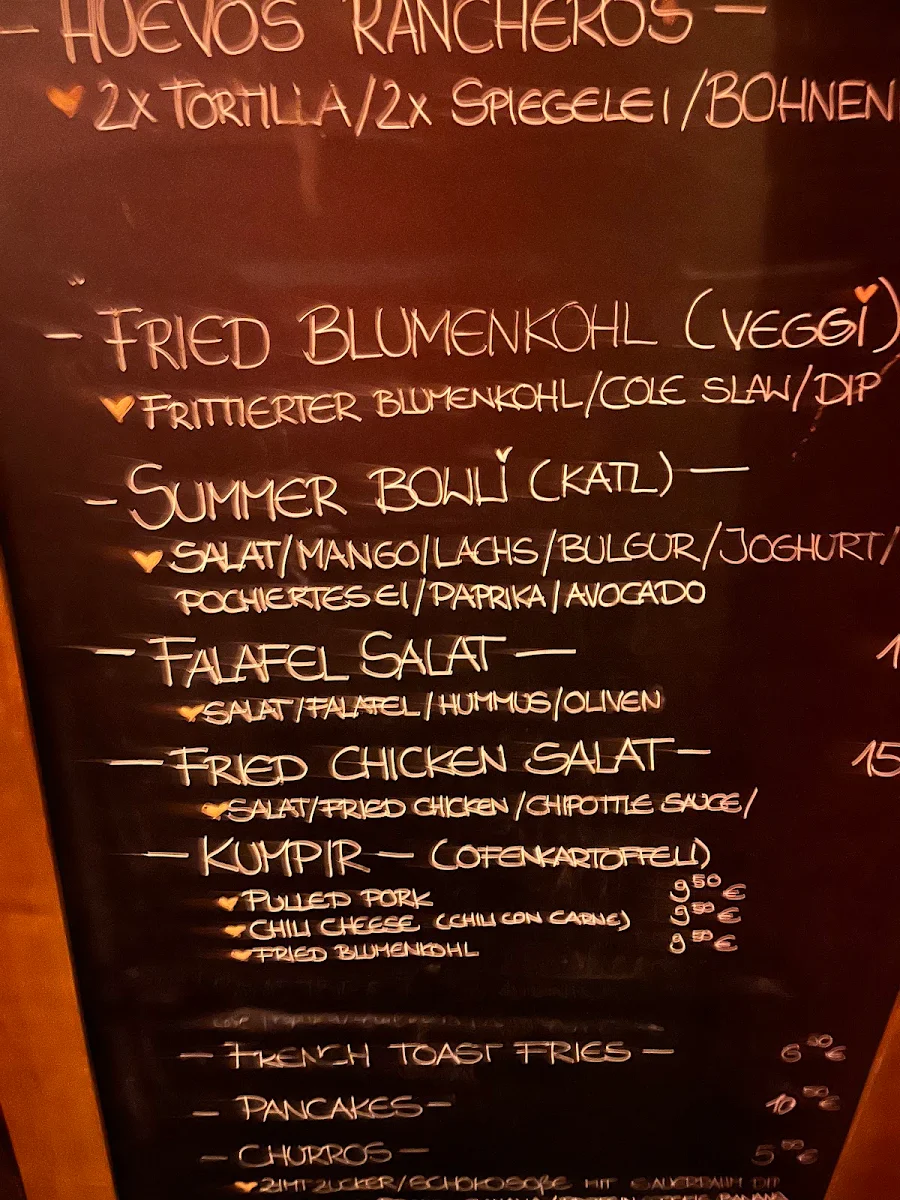 - HUEVOS RANCHEROS -
2X TORTILLA/2X SPIEGELEI/BOHNEN
- FRIED BLUMENKOHL (VEGGI)
FRITTIERTER BLUMENKOHL/COLE SLAW/DIP
- SUMMER BOWLI (KATL) -
SALAT/MANGO/LACHS/BULGUR/JOGHURT/
POCHIERTES EI/PAPRIKA/AVOCADO
- FALAFEL SALAT - 1
SALAT/FALAFEL/HUMMUS/OLIVEN
- FRIED CHICKEN SALAT - 15
SALAT/FRIED CHICKEN/CHIPOTTLE SAUCE/
- KUMPIR - (OFENKARTOFFELI)
PULLED PORK 9 50 €
CHILI CHEESE (CHILI CON CARNE) 9 50 €
FRIED BLUMENKOHL 9 50 €
- FRENCH TOAST FRIES - 6 €
- PANCAKES - 10 50 €
- CHURROS - 5 €
ZIMTZUCKER/SCHOKOSOßE MIT DIP